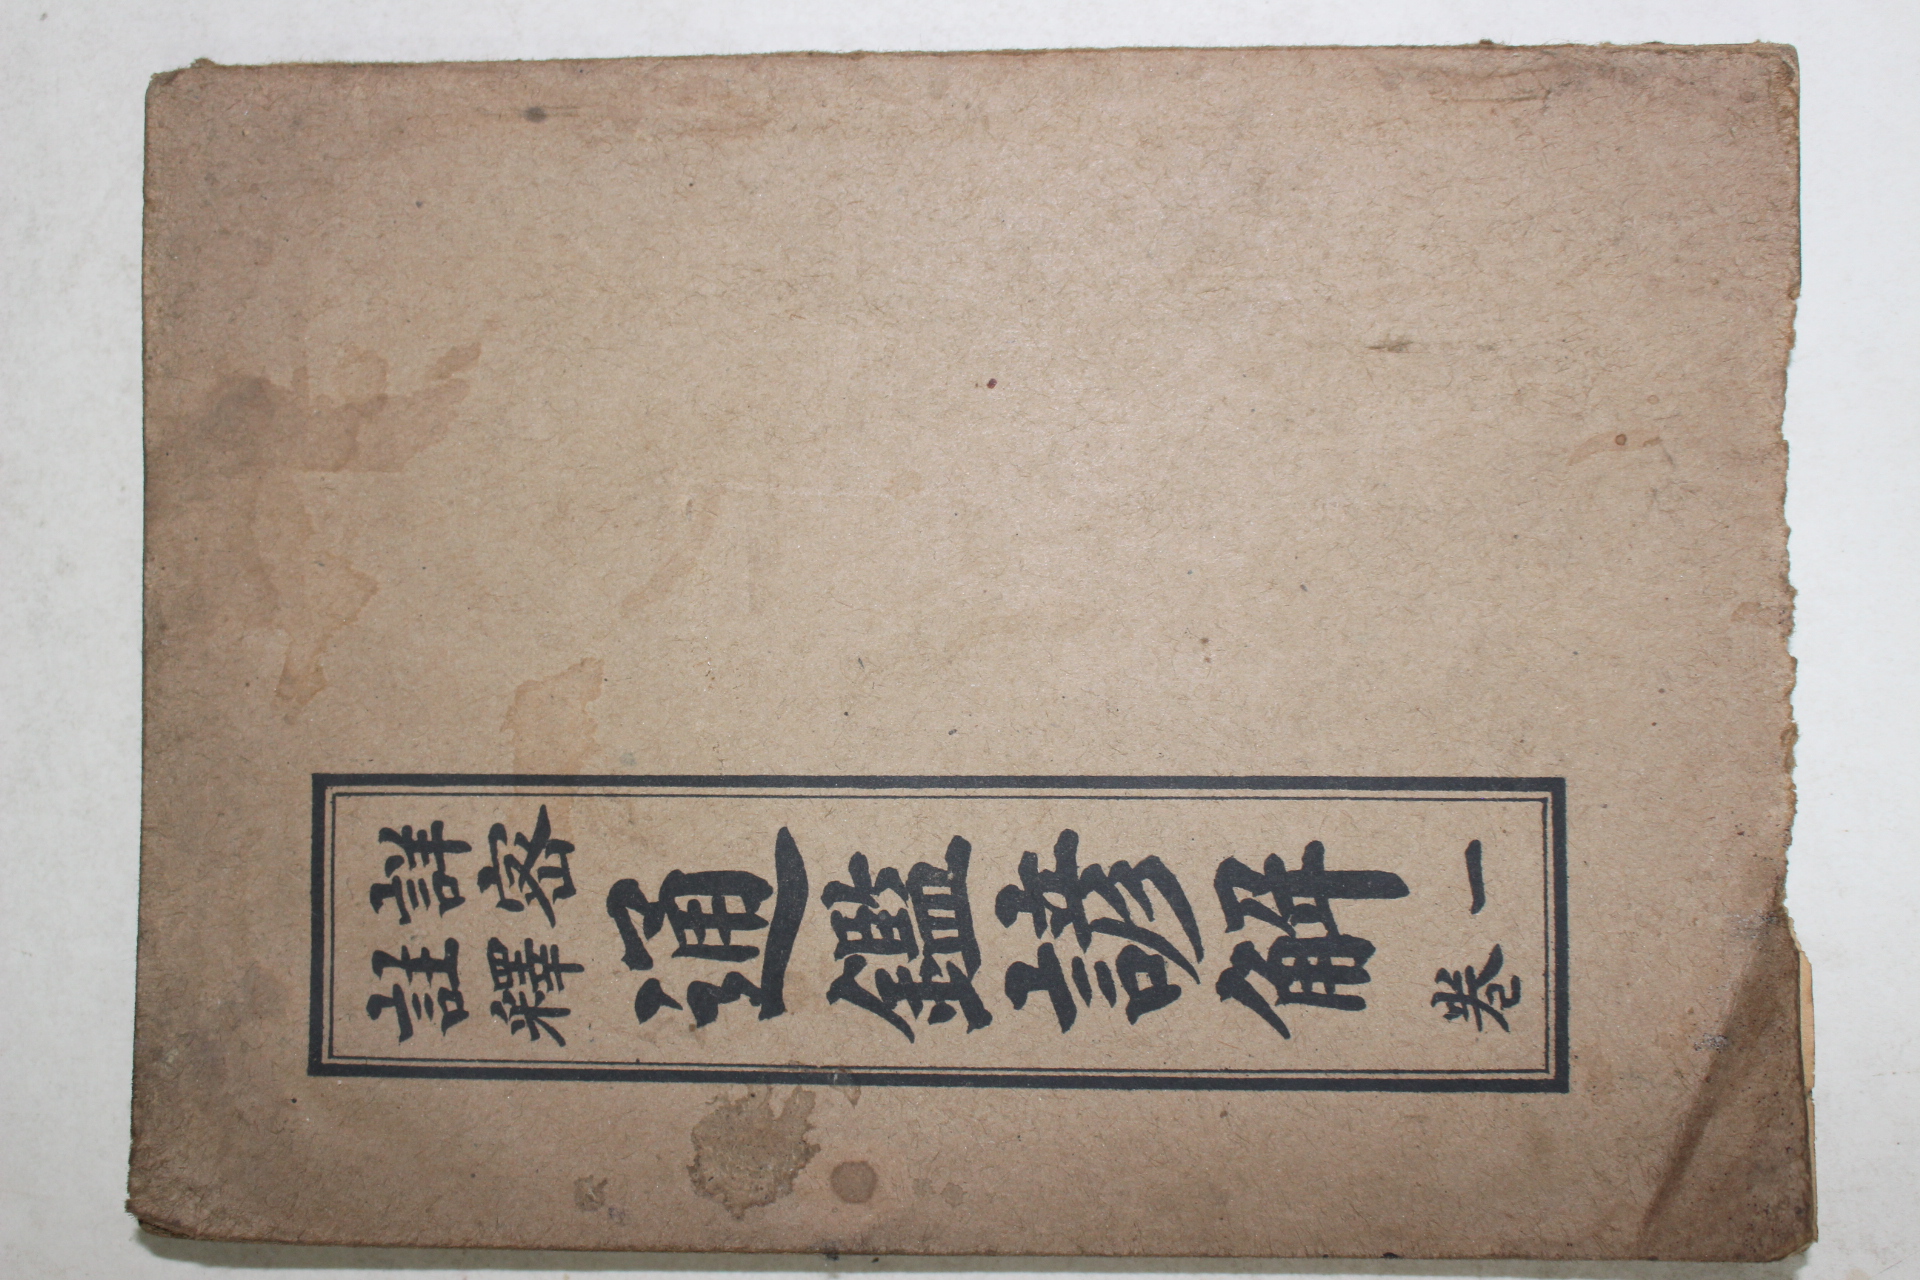 詳密
註釋
通鑑諺解
卷一